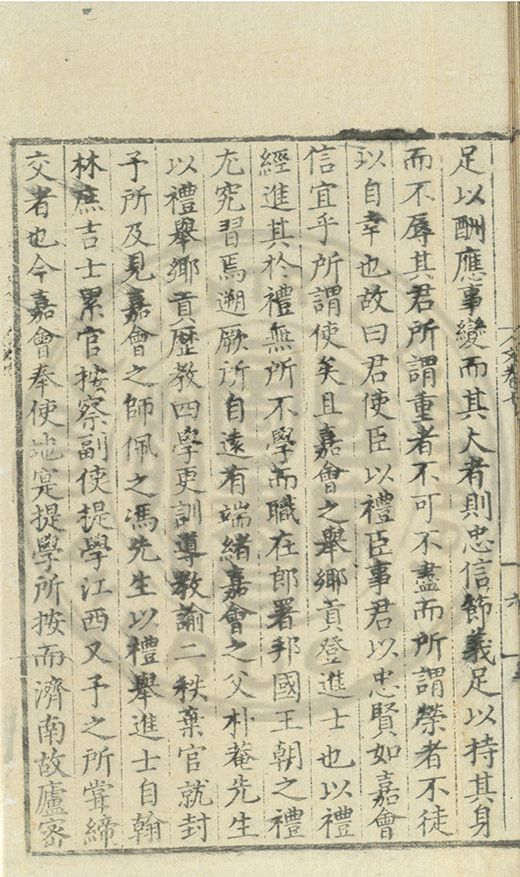 足以酬應事變而其大者則忠信節義足以持其身
而不辱其君所謂重者不可不盡而所謂榮者不徒
以自幸也故曰君使臣以禮臣事君以忠賢如嘉會
信宜乎所謂使矣且嘉會之舉鄉貢登進士也以禮
經進其於禮無所不學而職在郎署邦國王朝之禮
尤究習焉遡厥所自遠有端緒嘉會之父朴菴先生
以禮舉鄉貢歷教四學更訓導教諭二秩棄官就封
予所及見嘉會之師佩之馮先生以禮舉進士自翰
林庶吉士累官按察副使提學江西又予之所嘗締
交者也今嘉會奉使地寔提學所按而濟南故廬密